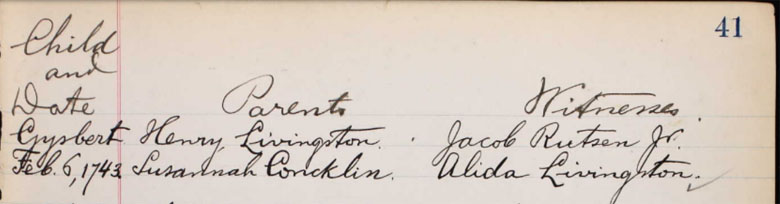 41
Child
and
Date Parents Witnesses.
Gysbert Henry Livingston. Jacob Rutsen Jr.
Feb. 6, 1743 Susannah Concklin. Alida Livingston.